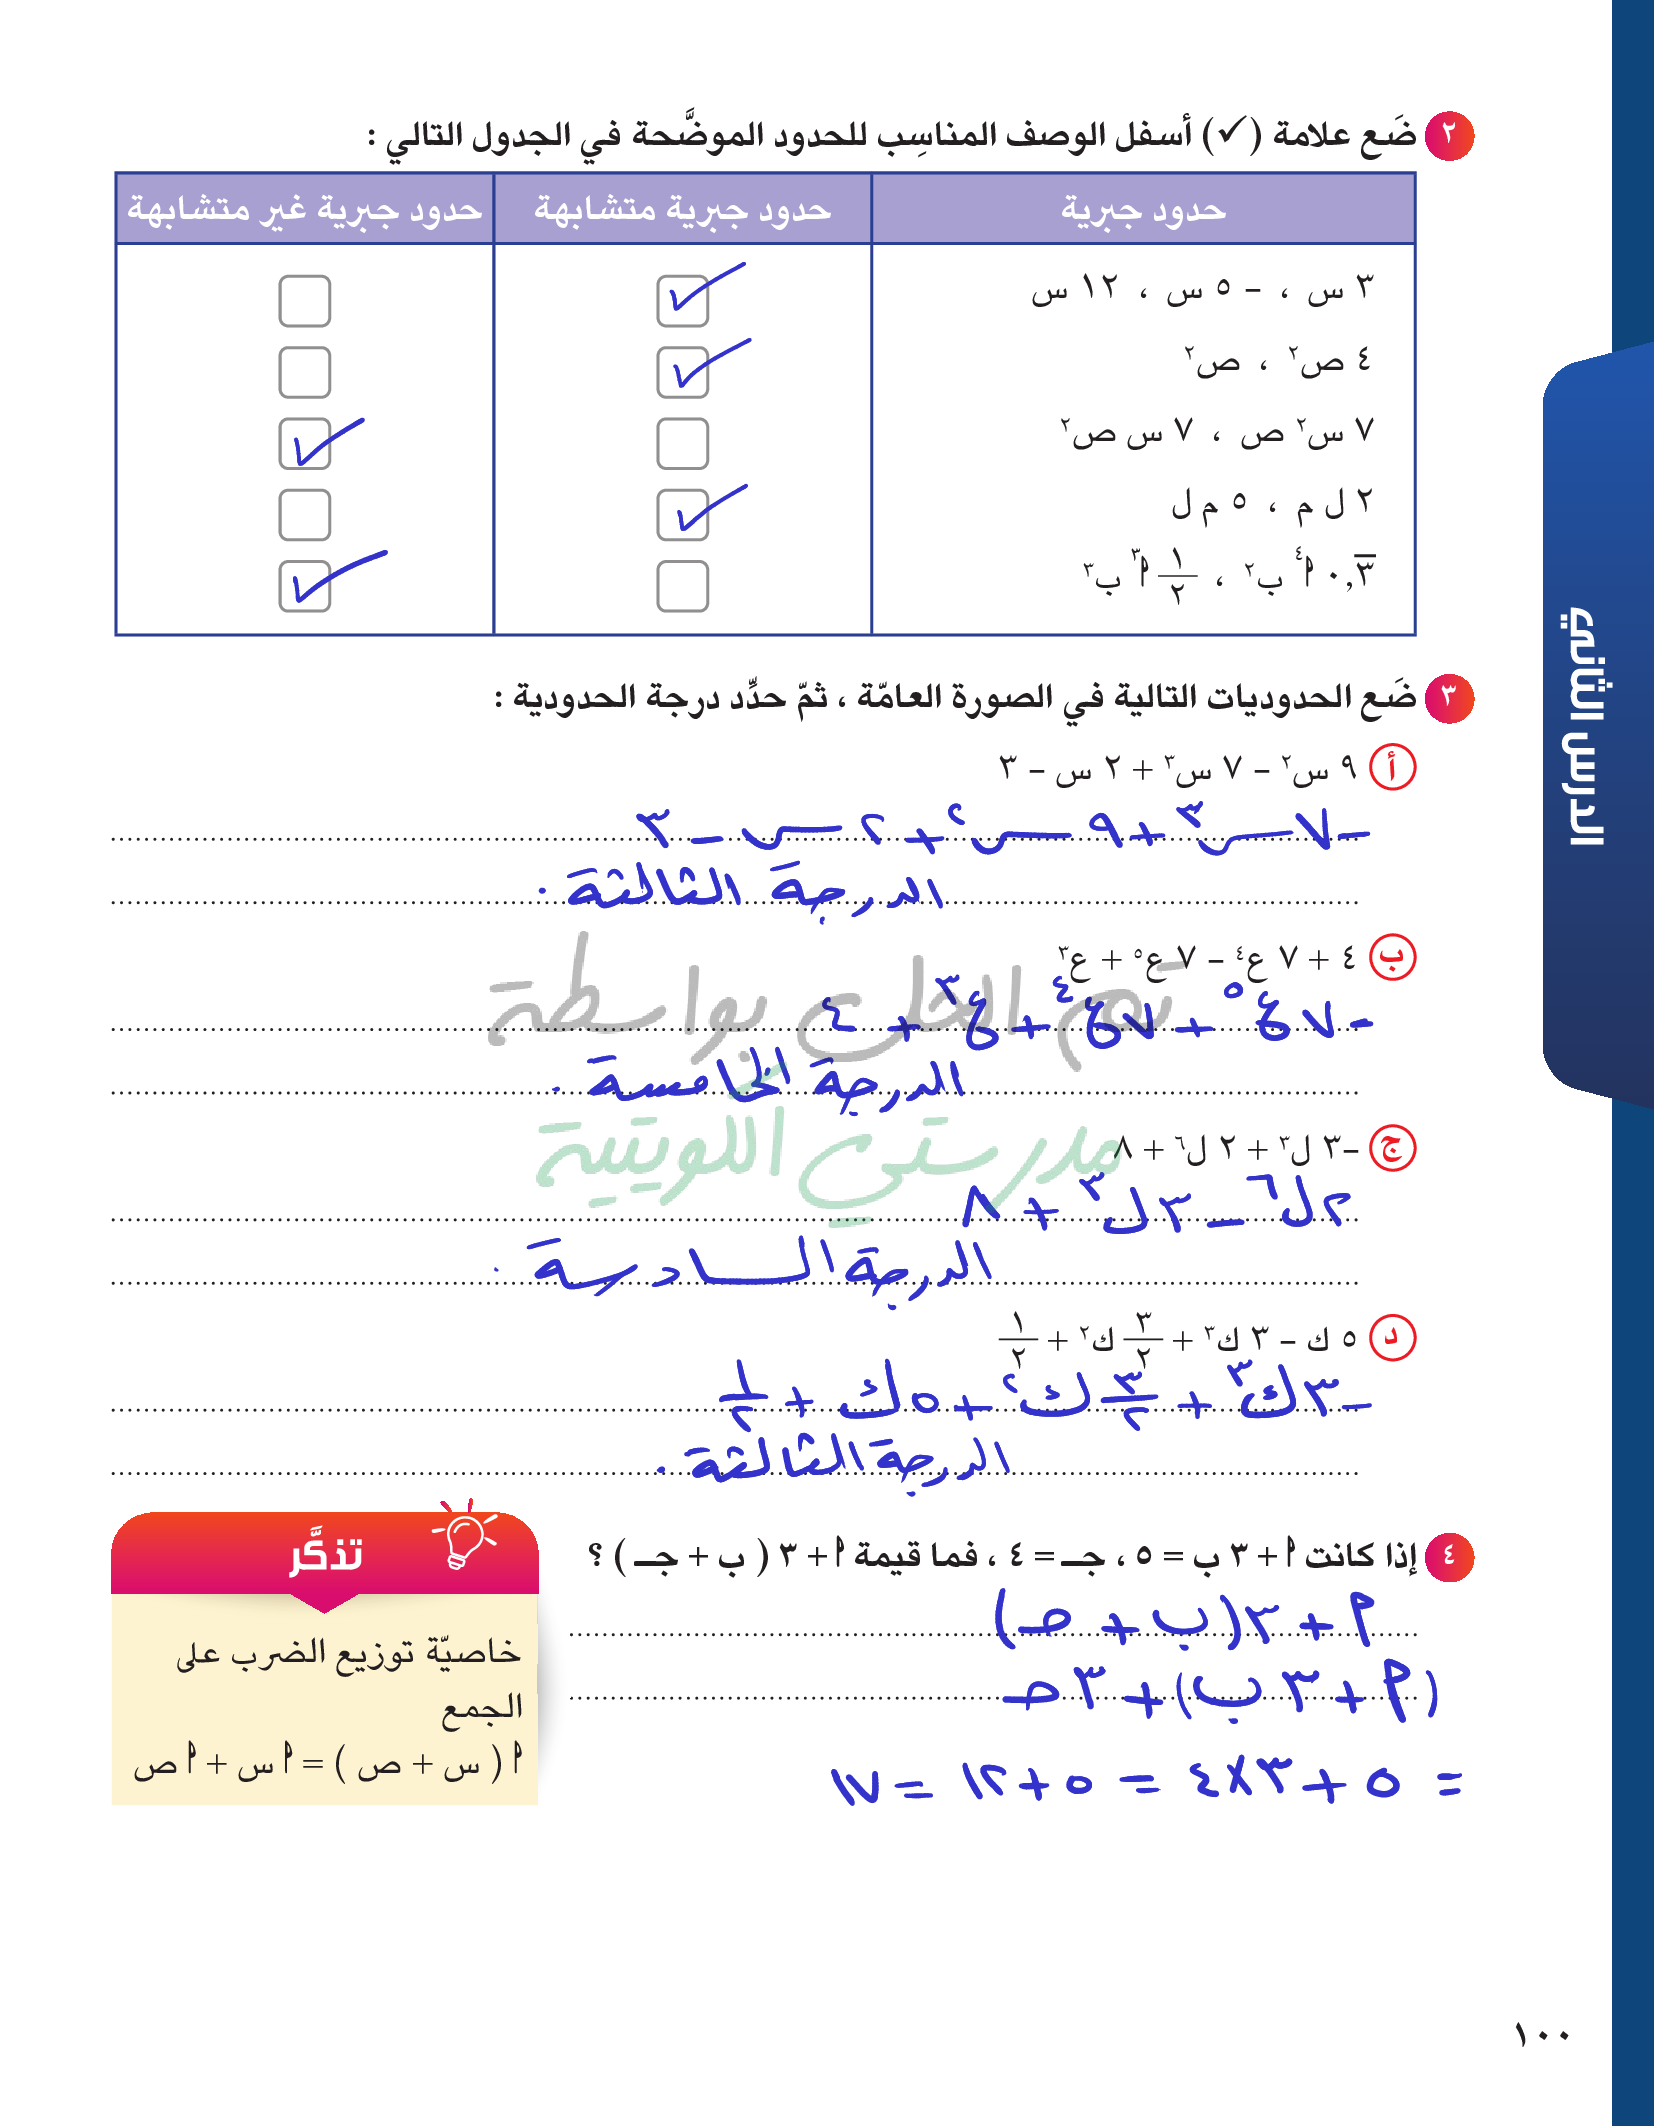 ٢ ضَع علامة (✓) أسفل الوصف المناسِب للحدود الموضَّحة في الجدول التالي :
حدود جبرية	حدود جبرية متشابهة	حدود جبرية غير متشابهة
٣ س ، – ٥ س ، ١٢ س	✓
٤ ص٢ ، ص٢	✓
٧ س٢ ص ، ٧ س ص٢		✓
٢ ل م ، ٥ م ل	✓
٠,٣̅ أ٤ ب٢ ، ١/٢ أ٣ ب٣		✓
٣ ضَع الحدوديات التالية في الصورة العامّة ، ثمّ حدِّد درجة الحدودية :
أ ٩ س٢ – ٧ س٣ + ٢ س – ٣
-٧ س٣ + ٩ س٢ + ٢ س - ٣
الدرجة الثالثة .
ب ٤ + ٧ ع٤ – ٧ ع٥ + ع٣
-٧ ع٥ + ٧ ع٤ + ع٣ + ٤
تم الحل بواسطة
الدرجة الخامسة .
مدرستي الكويتية
ج –٣ ل٣ + ٢ ل٦ + ٨
٢ ل٦ - ٣ ل٣ + ٨
الدرجة السادسة .
د ٥ ك – ٣ ك٣ + ٣/٢ ك٢ + ١/٢
-٣ ك٣ + ٣/٢ ك٢ + ٥ ك + ١/٢
الدرجة الثالثة .
٤ إذا كانت أ + ٣ ب = ٥ ، جـ = ٤ ، فما قيمة أ + ٣ ( ب + جـ ) ؟
أ + ٣ (ب + جـ)
(أ + ٣ ب) + ٣ جـ
= ٥ + ٣ × ٤ = ٥ + ١٢ = ١٧
تذكَّر
خاصيّة توزيع الضرب على
الجمع
أ ( س + ص ) = أ س + أ ص
الدرس الثاني
١٠٠